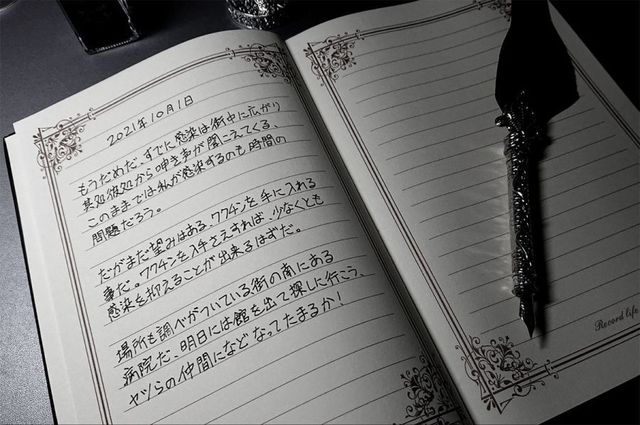 2021年10月1日
もうだめだ、すでに感染は街中に広がり
其処彼処から呻き声が聞こえてくる、
このままでは私が感染するのも時間の
問題だろう。
だがまだ望みはある、ワクチンを手に入れる
事だ。ワクチンを入手さえすれば、少なくとも
感染を抑えることが出来るはずだ。
場所も調べがついている街の南にある
病院だ、明日には館を出て探しに行こう、
ヤツらの仲間になどなってたまるか!
Record life